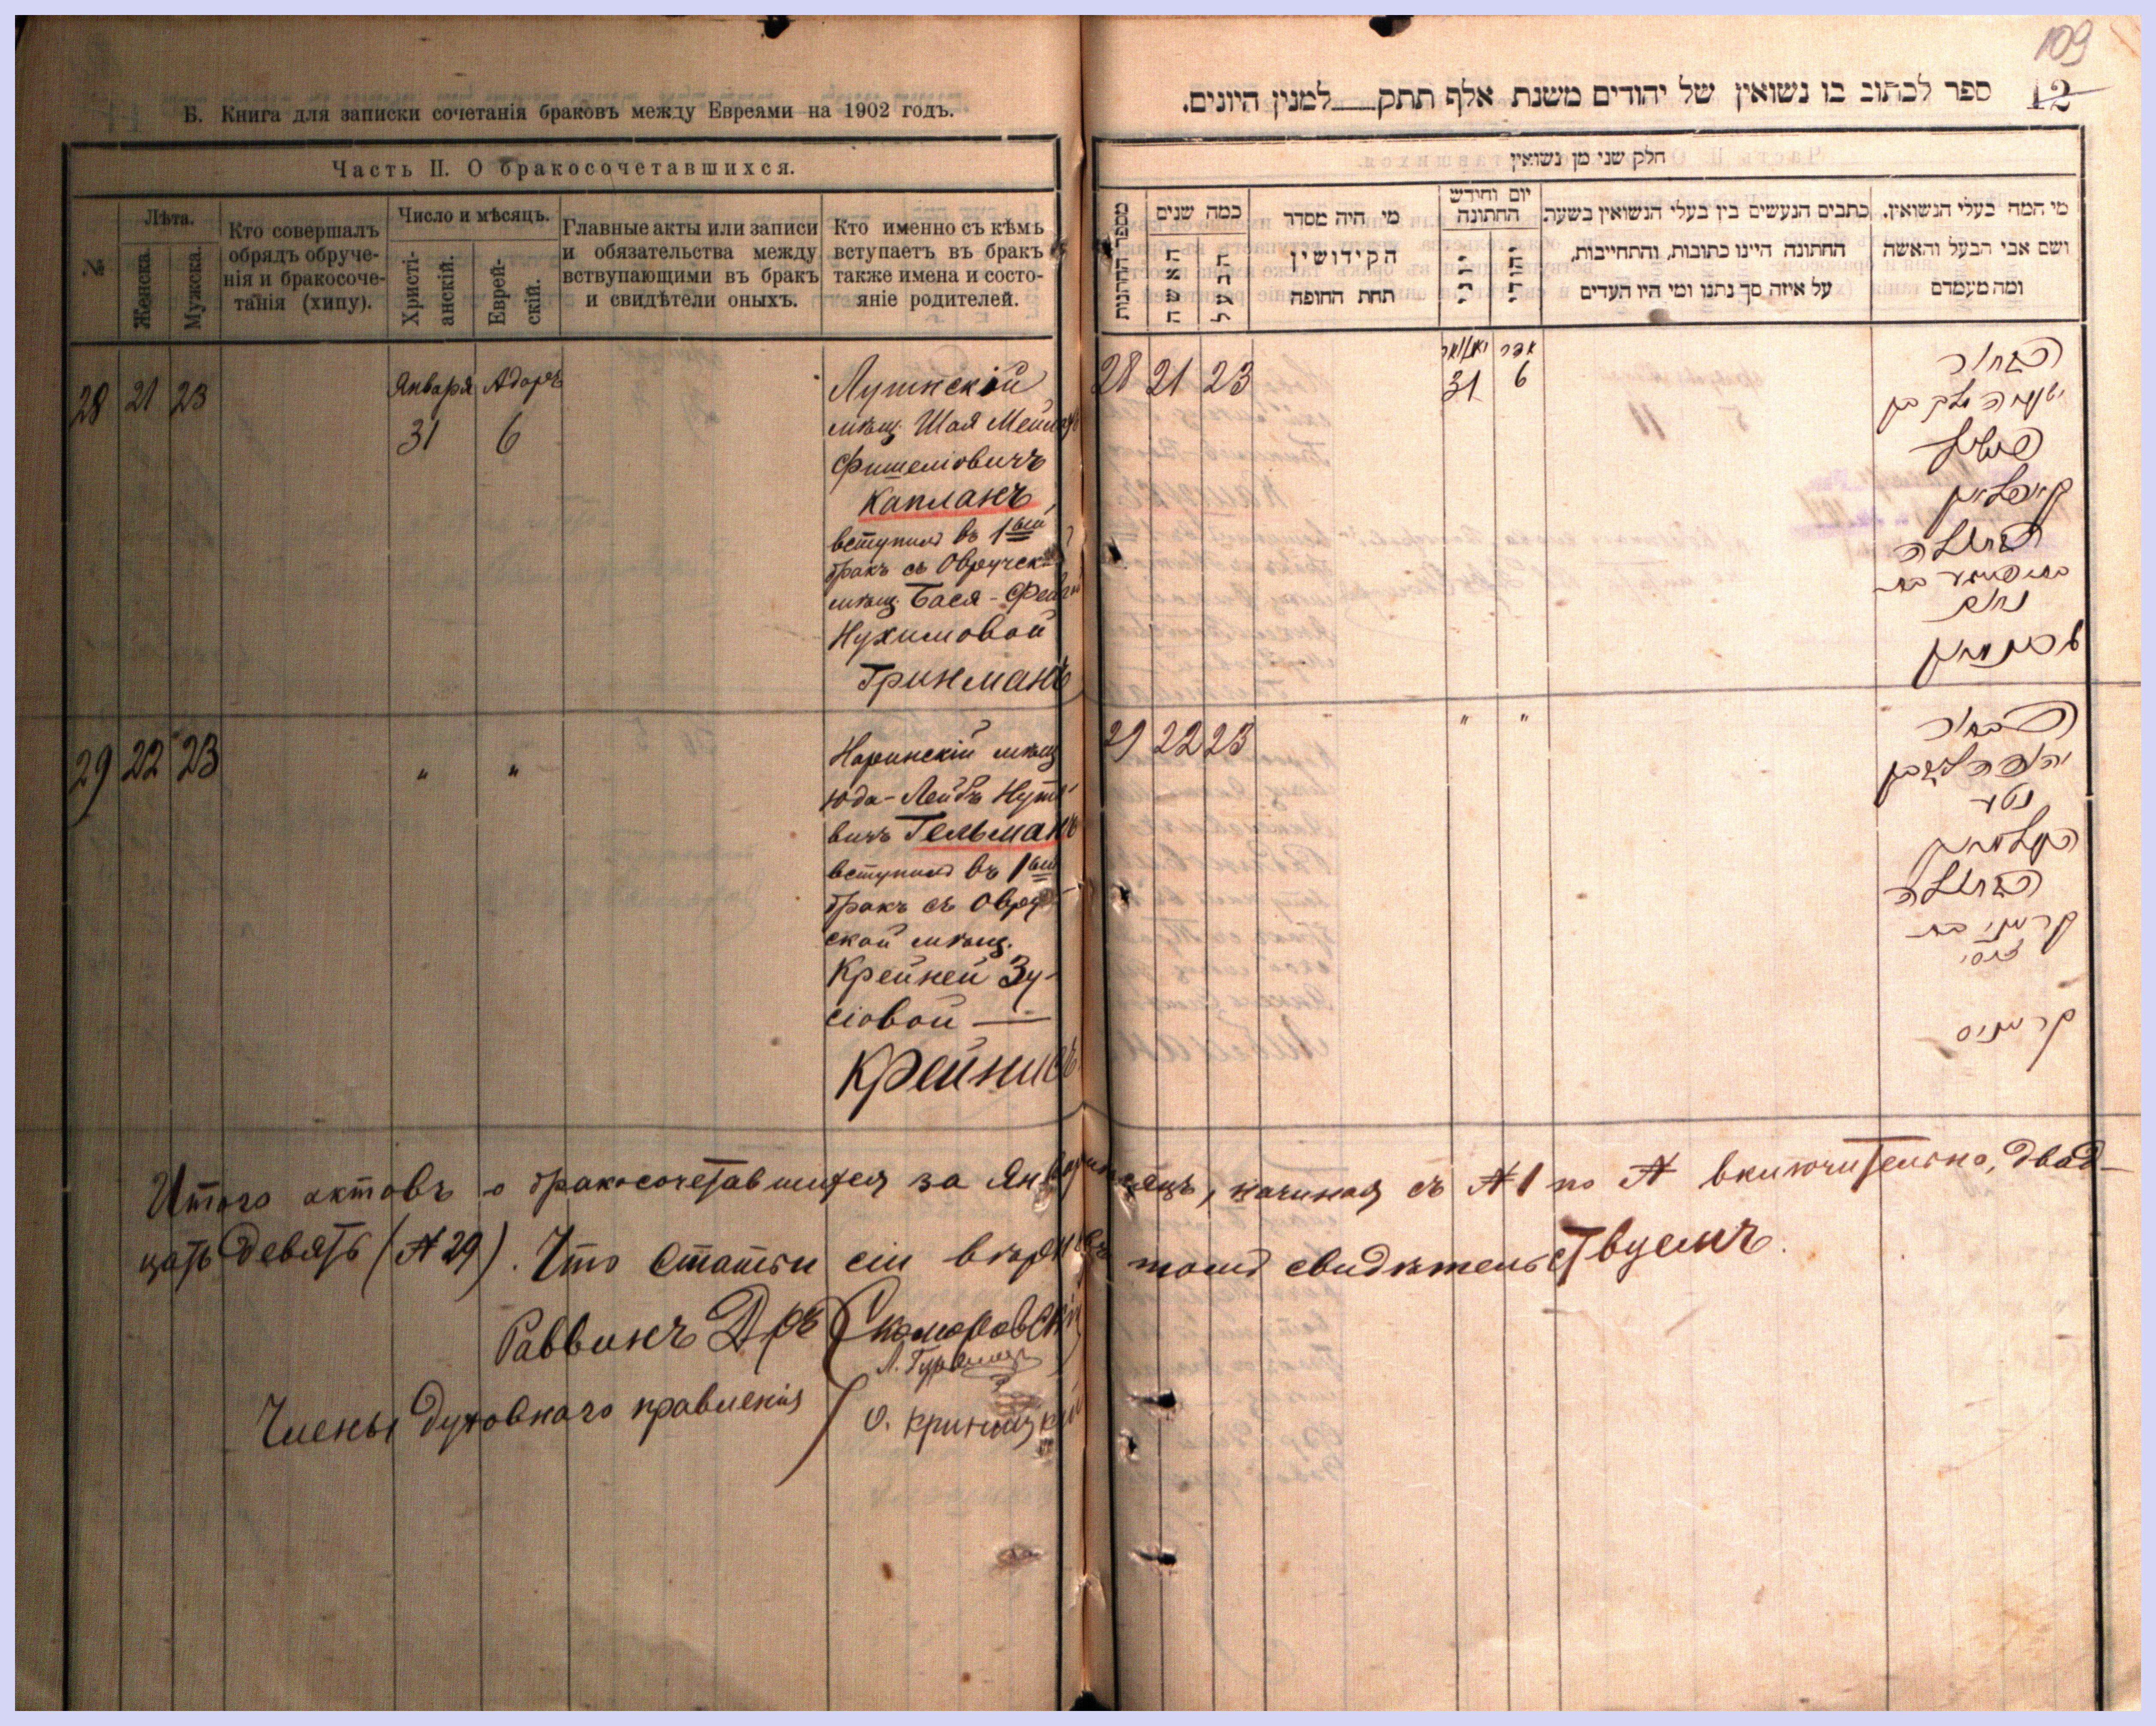 109
12
Б. Книга для записки сочетанія браковъ между Евреями на 1902 годъ.
Часть II. О бракосочетавшихся.
№
Лѣта.
Женска.
Мужска.
Кто совершалъ
обрядъ обруче-
нія и бракосоче-
танія (хипу).
Число и мѣсяцъ.
Христі-
анскій.
Еврей-
скій.
Главные акты или записи
и обязательства между
вствупающими въ бракъ
и свидѣтели оныхъ.
Кто именно съ кѣмъ
вступаетъ въ бракъ
также имена и состо-
яніе родителей.
28 21 23
Января Адаръ
31 6
Лушнскій
мѣщ. Шая Меил
Фишеліовичъ
Капланъ
вступилъ въ 1ый
бракъ съ Овручск
мѣщ. Бася-Фейг
Нухимовой
Гринманъ
29 22 23
" "
Наринскій мѣщ
Юда-Лейбъ Нут
вичъ Гельманъ
вступилъ въ 1ый
бракъ съ Овру
ской мѣщ.
Крейней Зу-
сіовой —
Крейнисъ
ספר לכתוב בו נשואין של יהודים משנת אלף תתק למנין היונים.
חלק שני מן נשואין
מספר החתונות
כמה שנים
האשה
הבעל
מי היה מסדר
הקידושין
תחת החופה
יום וחידש
החתונה
יוני
יהודי
כתבים הנעשים בין בעלי הנשואין בשעת
החתונה היינו כתובות, והתחייבות,
על איזה סך נתנו ומי היו העדים
מי המה בעלי הנשואין,
ושם אבי הבעל והאשה
ומה מעמדם
28 21 23
יאנואר אדר
31 6
הבחור
ישעיה בן
פישל
קאפלאן
הבתולה
בת
נחום
גרינמאן
29 22 23
" "
הבחור
יהודה ליב בן
נטע
העלמאן
הבתולה
קרייני בת
זוסי
קרייניס
Итого актовъ о бракосочетавшихся за Январь мѣсяцъ, начиная съ №1 по № включительно, двад-
цать девять (№29). Что статьи сіи вѣрны въ томъ свидѣтельствуемъ.
Раввинъ Д-ръ Скоморовскій
Л. Гурвицъ
Члены Духовнаго правленія
О. Криницкій